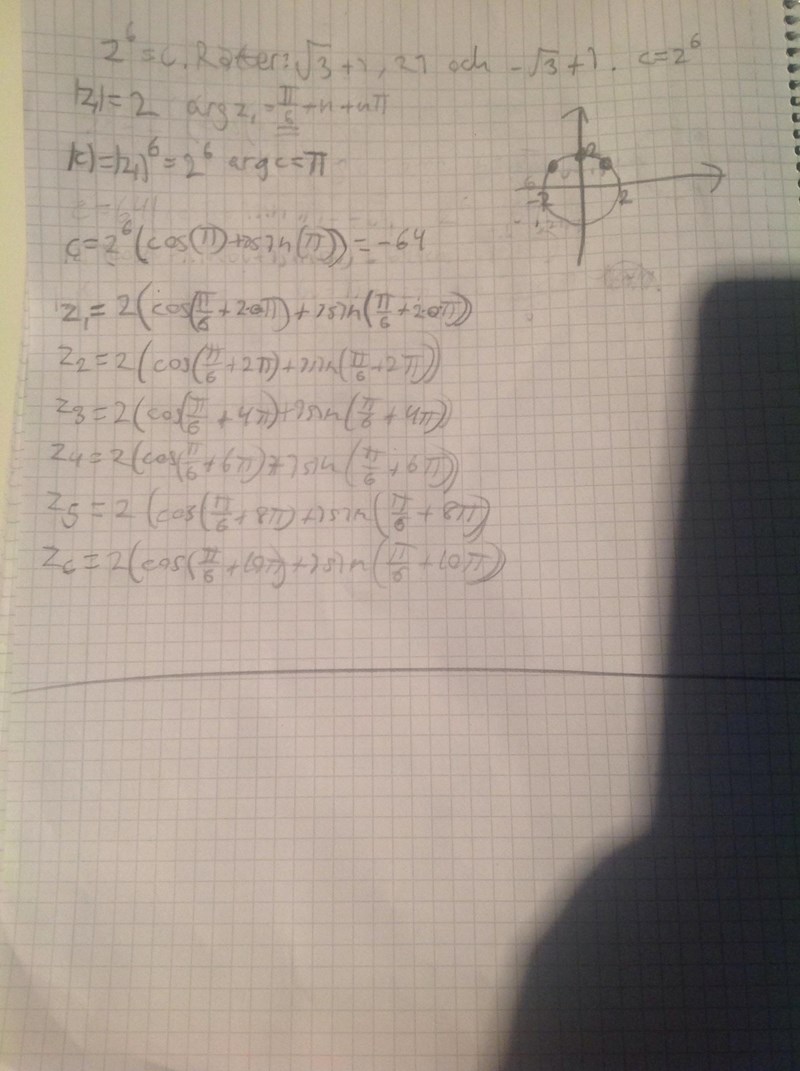 z⁶ = c. Rötter: √3 + i, 2i och -√3 + i. c = z⁶
|z₁| = 2 arg z₁ = π/6 + n + nπ
|c| = |z₁|⁶ = 2⁶ arg c = π
2
-2 2
c = 2⁶(cos(π) + i sin(π)) = -64
z₁ = 2(cos(π/6 + 2·0π) + i sin(π/6 + 2·0π))
z₂ = 2(cos(π/6 + 2π) + i sin(π/6 + 2π))
z₃ = 2(cos(π/6 + 4π) + i sin(π/6 + 4π))
z₄ = 2(cos(π/6 + 6π) + i sin(π/6 + 6π))
z₅ = 2(cos(π/6 + 8π) + i sin(π/6 + 8π))
z₆ = 2(cos(π/6 + 10π) + i sin(π/6 + 10π))